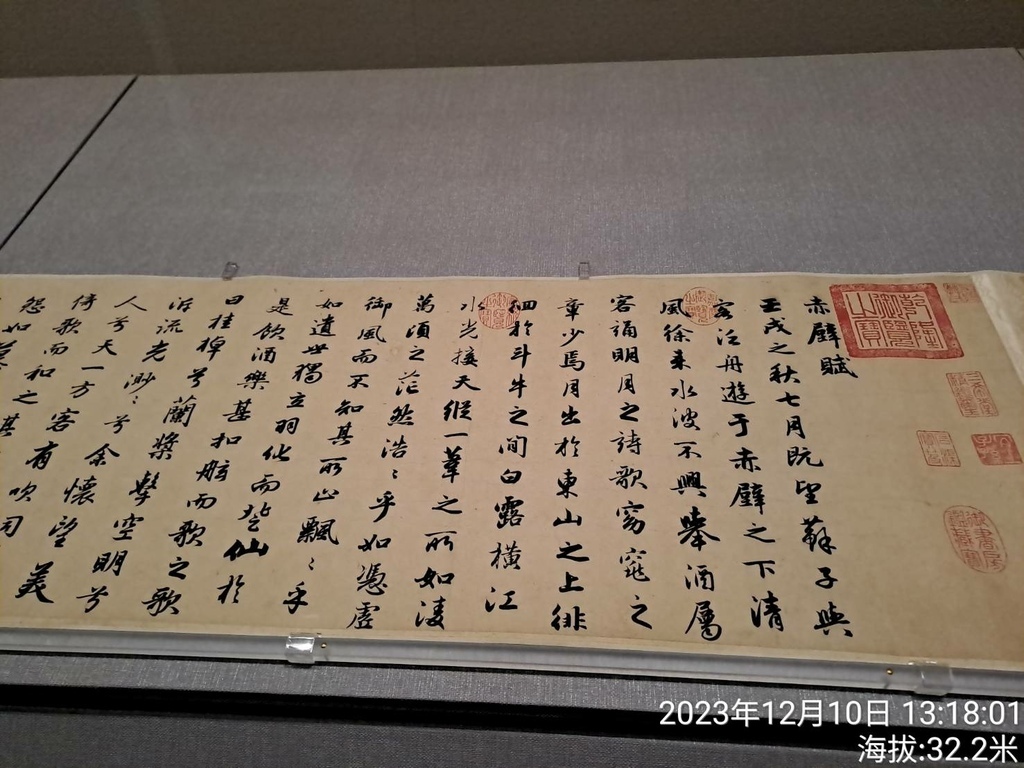 赤壁賦
壬戌之秋七月既望蘇子與
客泛舟遊于赤壁之下清
風徐来水波不興舉酒屬
客誦明月之詩歌窈窕之
章少焉月出於東山之上徘
徊於斗牛之間白露橫江
水光接天縱一葦之所如淩
萬頃之茫然浩〻乎如憑虛
御風而不知其所止飄〻乎
如遺世獨立羽化而登仙於
是飲酒樂甚扣舷而歌之歌
曰桂棹兮蘭槳擊空明兮
泝流光渺〻兮余懷望美
人兮天一方客有吹洞
倚歌而和之其
怨如慕
乾隆御覽之寶
三希堂精鑑璽
宜子孫
2023年12月10日 13:18:01
海拔:32.2米